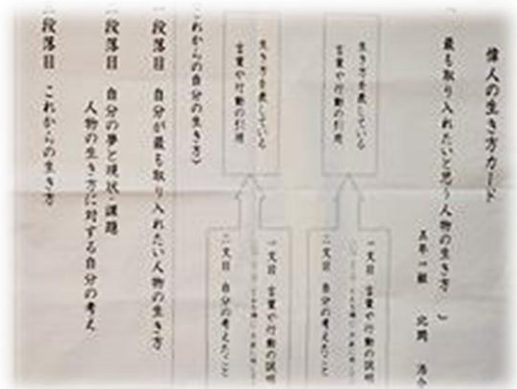 偉人の生き方カード
最も取り入れたいと思う人物の生き方
五年一組
生き方を表している
言葉や行動の引用
一文目 言葉や行動の説明
二文目 自分の考えたこと
生き方を表している
言葉や行動の引用
一文目 言葉や行動の説明
二文目 自分の考えたこと
これからの自分の生き方
一段落目 自分が最も取り入れたい人物の生き方
段落目 自分の夢と現状・課題
人物の生き方に対する自分の考え
段落目 これからの生き方